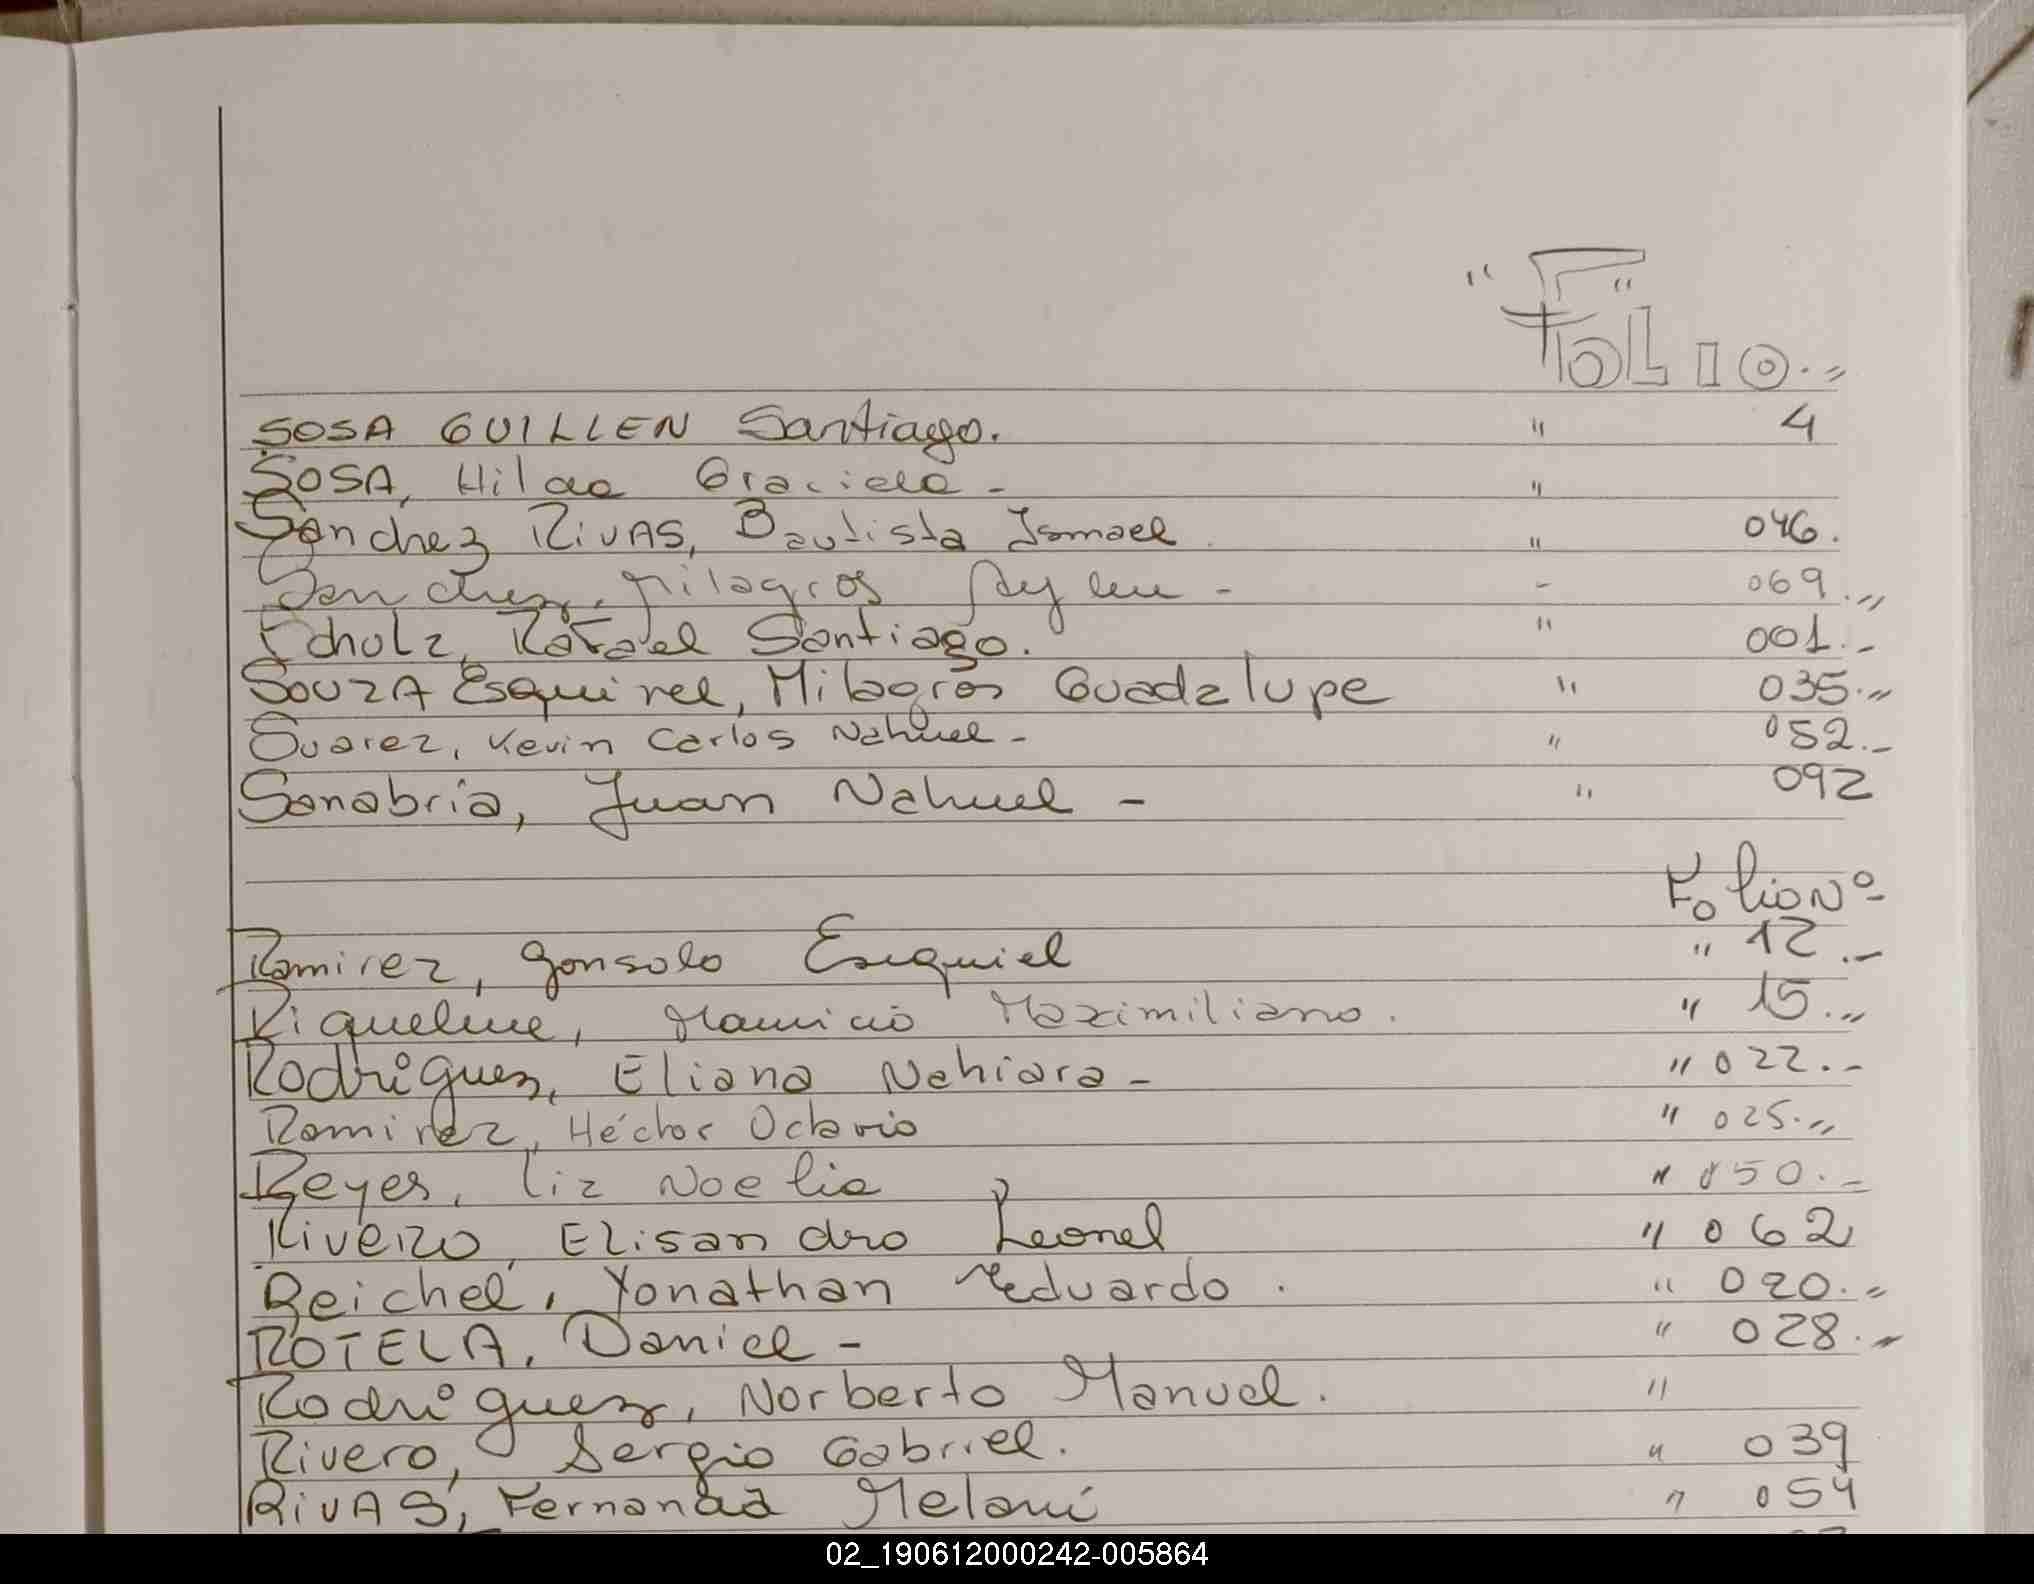 " F "
FOLIO.=
SOSA GUILLEN Santiago. " 4
SOSA, Hilda Graciela - "
Sanchez RIVAS, Bautista Ismael. " 046.
Sanchez, Milagros Aylen - - 069.,,
Scholz, Rafael Santiago. " 001.-
SOUZA Esquivel, Milagros Guadalupe " 035.,,
Suarez, Kevin Carlos Nahuel - " 052.-
Sanabria, Juan Nahuel - " 092
Folio Nº
Ramirez, Gonsalo Esequiel " 12.-
Riquelme, Mauricio Maximiliano. " 15.,,
Rodriguez, Eliana Nahiara - " 022.-
Ramirez, Héctor Octavio " 025.,,
Reyes, Liz Noelia " 050.=
Rivero, Elisandro Leonel " 062
Reichel, Yonathan Eduardo. " 020.=
ROTELA, Daniel - " 028.-
Rodriguez, Norberto Manuel. "
Rivero, Sergio Gabriel. " 039
RIVAS, Fernanda Melani " 054
02_190612000242-005864